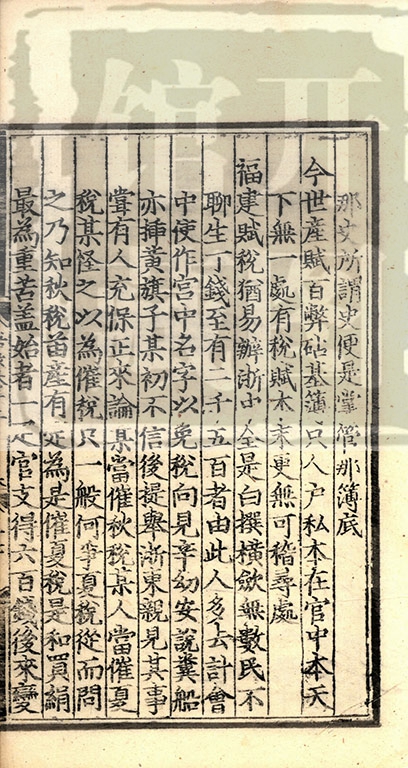 那史所謂史便是掌管那簿底
今世産賦百弊砧基簿只人户私本在官中本天
下無一處有稅賦本末更無可稽尋處
福建賦稅猶易辦浙中全是白撰橫斂無數民不
聊生丁錢至有二千五百者由此人多去計會
中使作宮中名字以免稅向見辛幼安說糞船
亦插黃旗子某初不信後提舉浙東親見其事
嘗有人充保正來論某當催秋稅某人當催夏
稅某怪之以為催稅只一般何爭夏稅從而問
之乃知秋稅苗産有定為是催夏稅是和買絹
最為重苦盖始者一疋官支得六百錢後來變